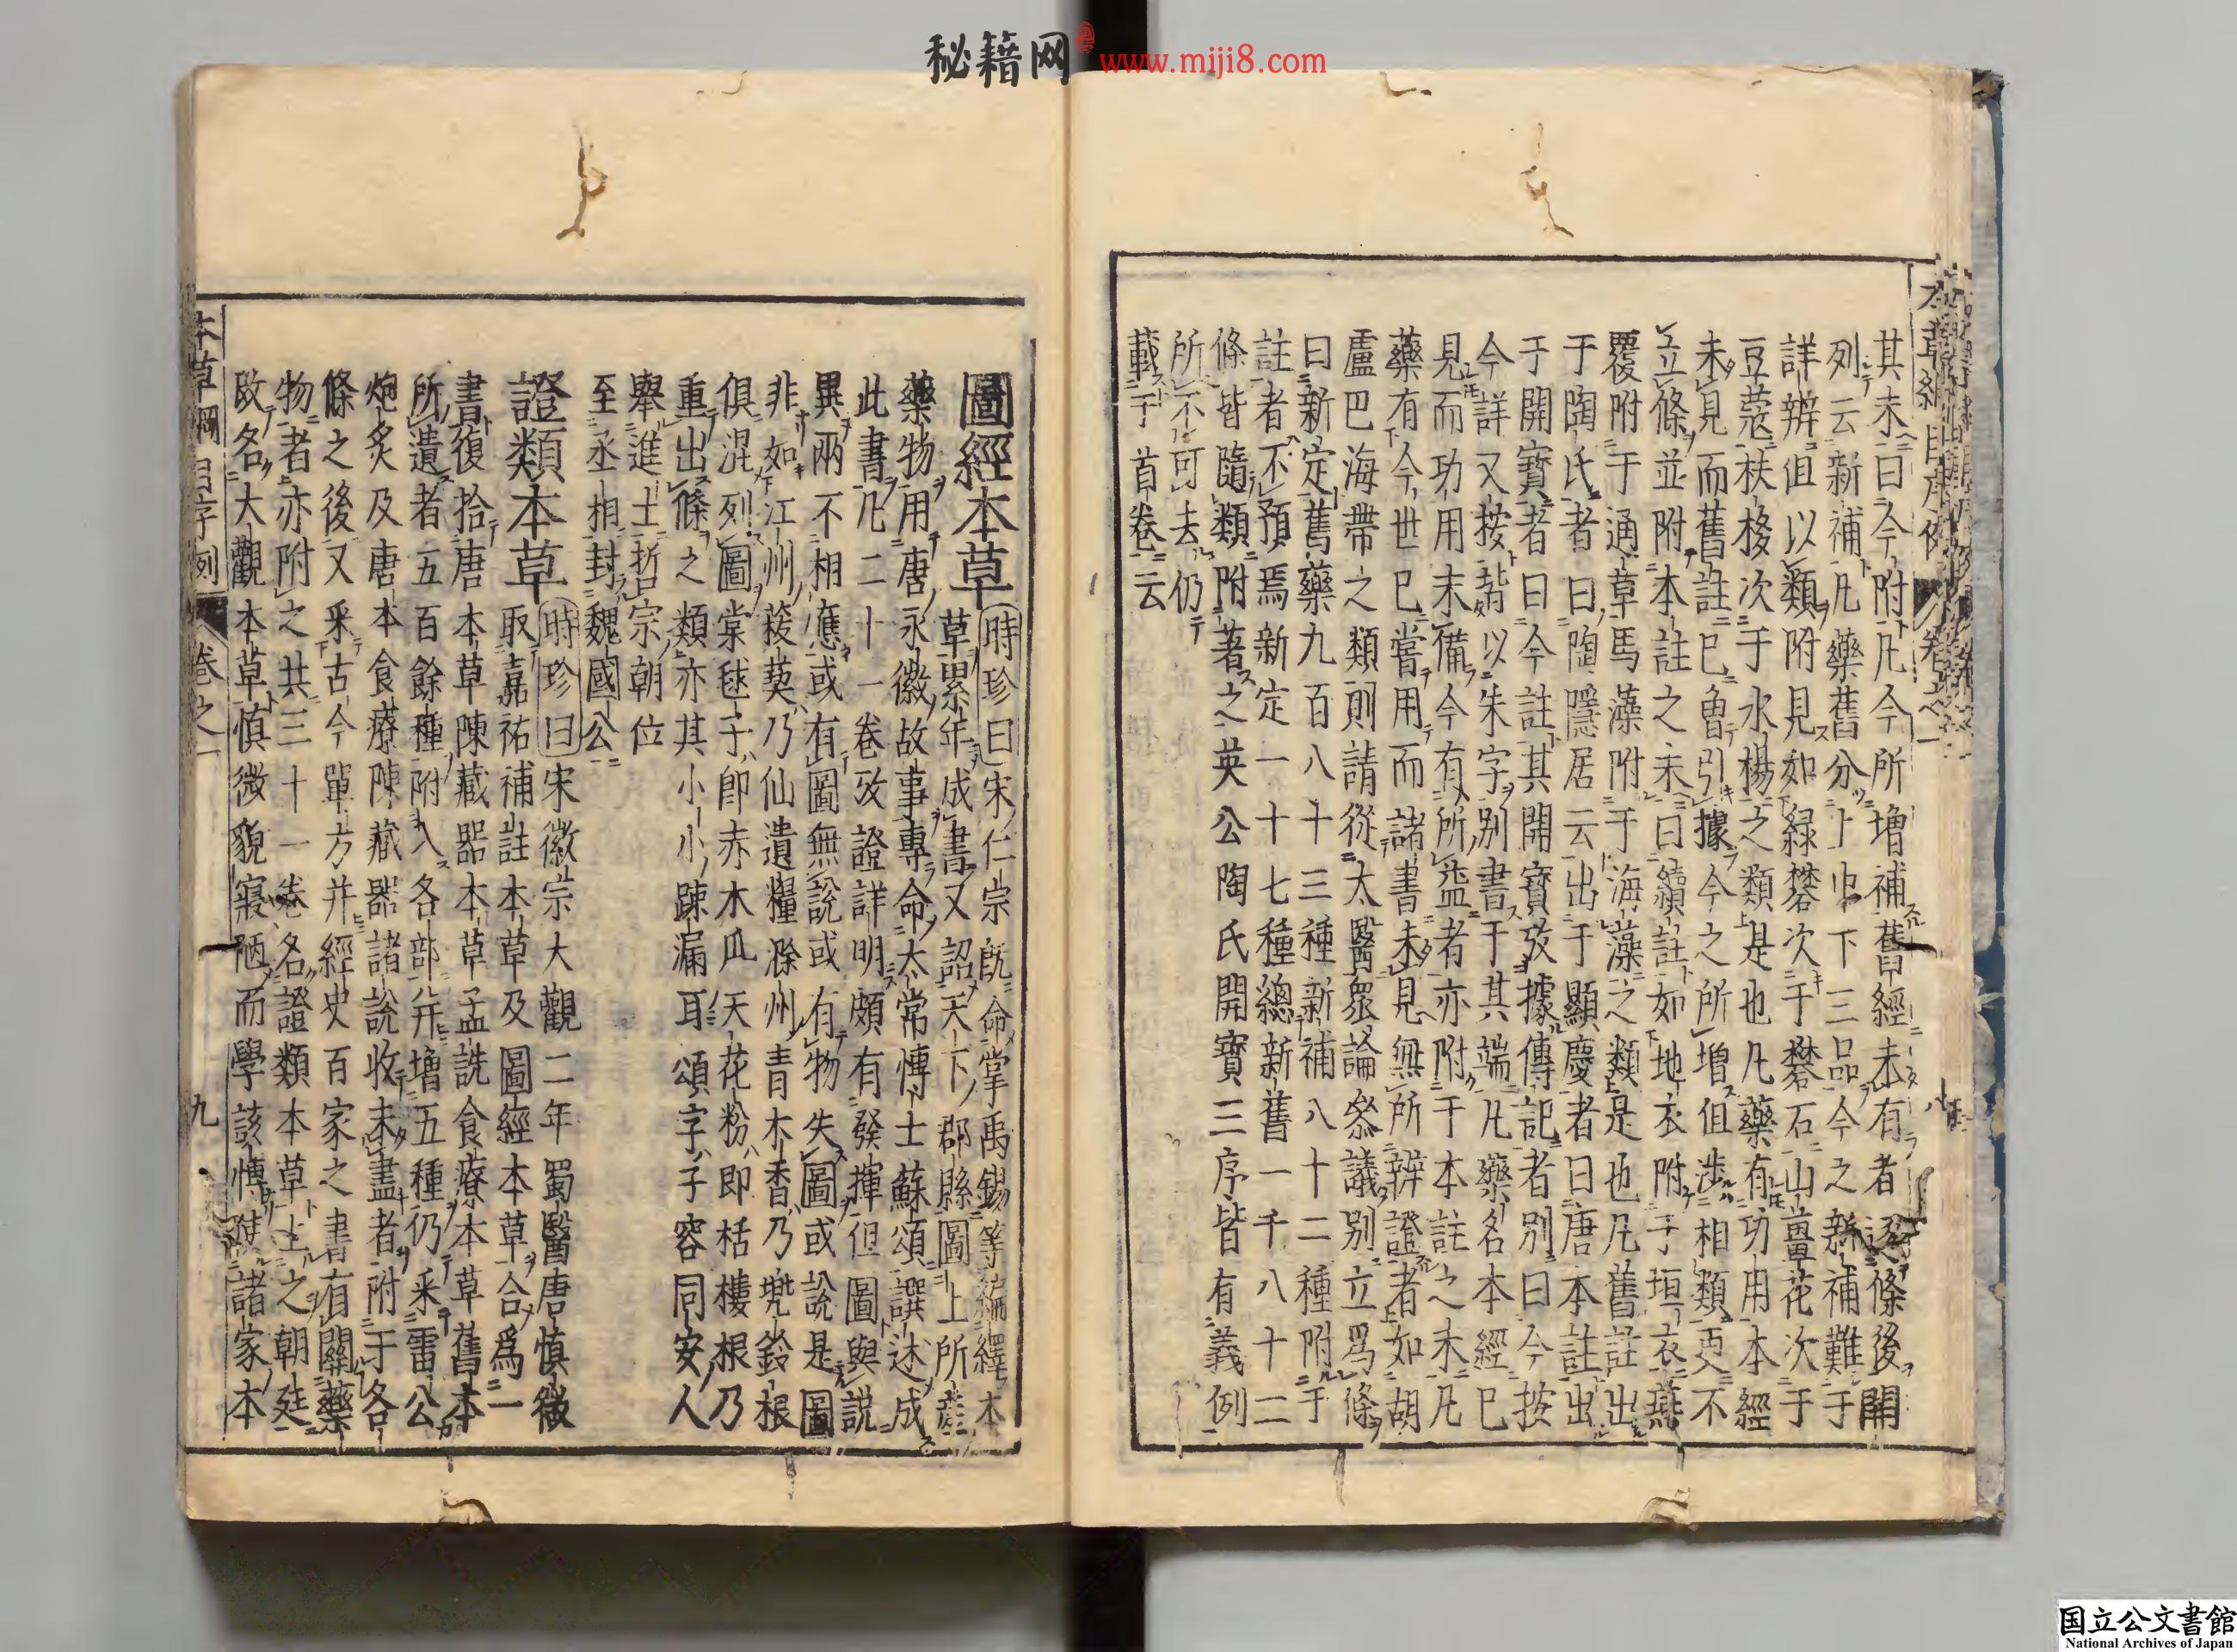 秘籍网 www.miji8.com
其末曰今附凡今所增補舊經未有者逐條後開
列云新補凡藥舊分上中下三品今之新補難于
詳辨但以類附見如緑礬次于礬石山薑花次于
豆蔲扶栘次于水楊之類是也凡藥有功用本經
未見而舊註已曾引據今之所增但涉相類更不
立條並附本註之末曰續註如地衣附于垣衣燕
覆附于通草馬藻附于海藻之類是也凡舊註出
于陶氏者曰陶隱居云出于顯慶者曰唐本註出
于開寶者曰今註其開寶攷據傳記者别曰今按
今詳又按皆以朱字别書于其端凡藥名本經已
見而功用未備今有所益者亦附于本註之末凡
藥有今世已嘗用而諸書未見無所辨證者如胡
盧巴海帶之類則請從太醫衆論參議别立爲條
曰新定舊藥九百八十三種新補八十二種附于
註者不預焉新定一十七種總新舊一千八十二
條皆隨類附著之英公陶氏開寶三序皆有義例
所不可去仍
載于首卷云
圖經本草 時珍曰宋仁宗既命掌禹錫等編繹本
草累年成書又詔天下郡縣圖上所産
藥物用唐永徽故事專命太常博士蘇頌譔述成
此書凡二十一卷攷證詳明頗有發揮但圖與說
異兩不相應或有圖無說或有物失圖或說是圖
非如江州菝葜乃仙遺糧滁州青木香乃兜鈴根
俱混列圖棠毬子卽赤木瓜天花粉即栝樓根乃
重出條之類亦其小小踈漏耳頌字子容同安人
舉進士哲宗朝位
至丞相封魏國公
證類本草 時珍曰宋徽宗大觀二年蜀醫唐慎微
取嘉祐補註本草及圖經本草合爲一
書復拾唐本草陳藏器本草孟詵食療本草舊本
所遺者五百餘種附入各部并增五種仍采雷公
炮炙及唐本食療陳藏器諸說收未盡者附于各
條之後又采古今單方并經史百家之書有關藥
物者亦附之共三十一卷名證類本草上之朝廷
改名大觀本草慎微貌寢陋而學該博使諸家本
本草綱目序例 卷之一 九
国立公文書館
National Archives of Japan